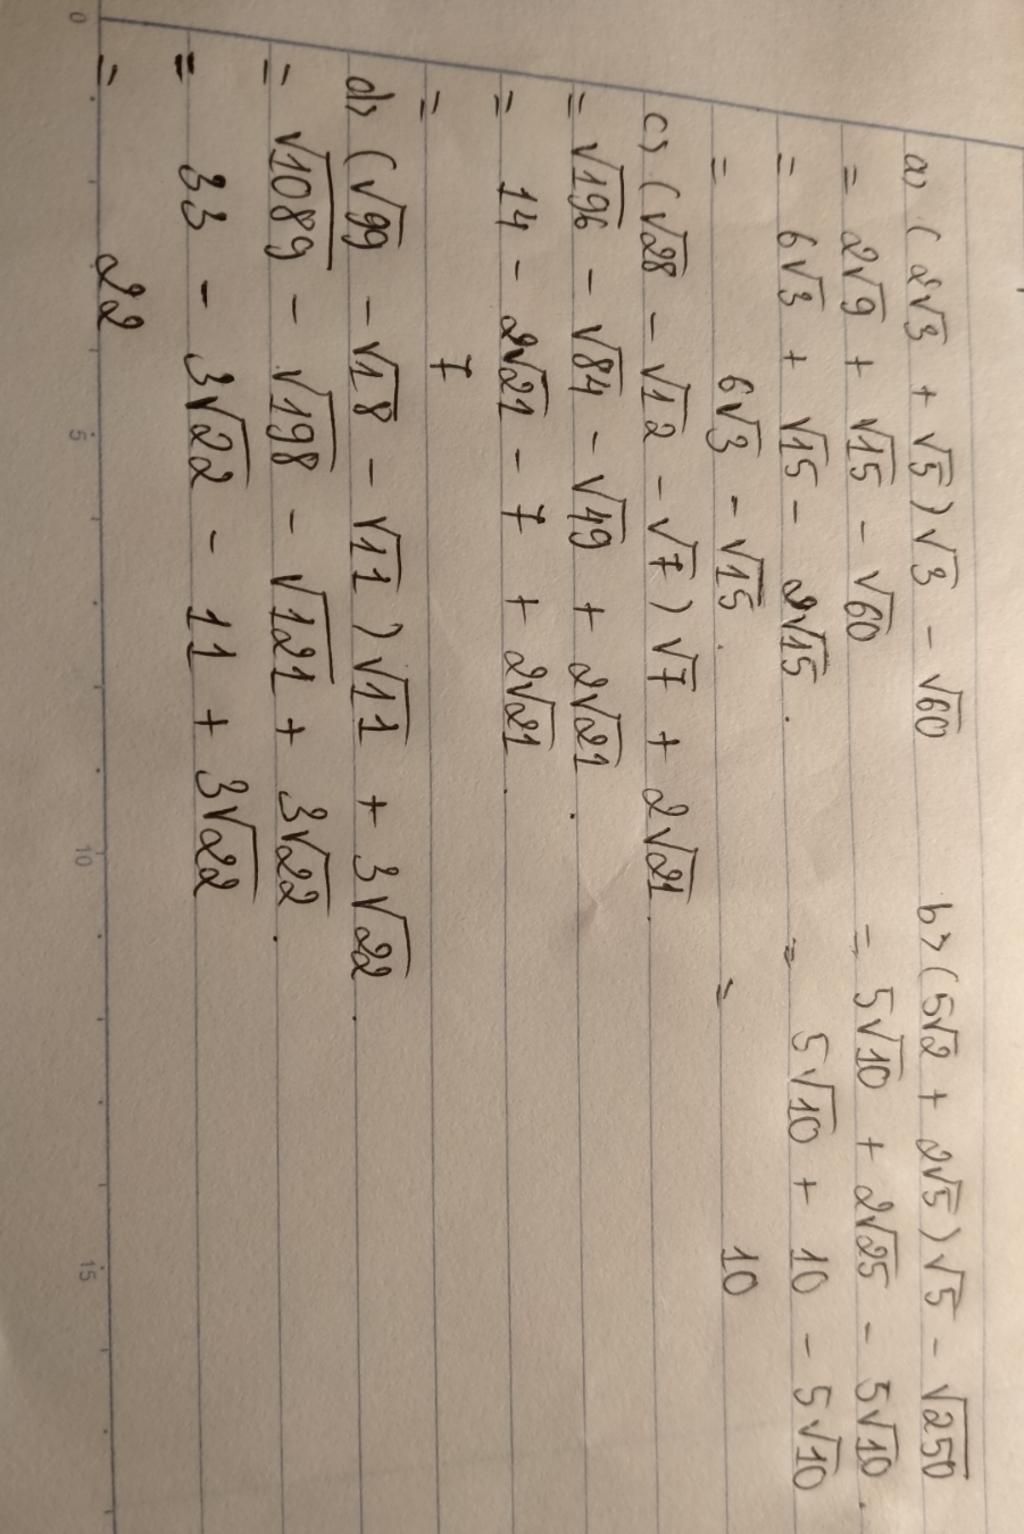 a) (2√3 + √5)√3 - √60
= 2√9 + √15 - √60
= 6√3 + √15 - 2√15.
= 6√3 - √15.
b) (5√2 + 2√5)√5 - √250
= 5√10 + 2√25 - 5√10.
= 5√10 + 10 - 5√10
= 10
c) (√28 - √12 - √7)√7 + 2√21.
= √196 - √84 - √49 + 2√21.
= 14 - 2√21 - 7 + 2√21.
= 7
d) (√99 - √18 - √11)√11 + 3√22.
= √1089 - √198 - √121 + 3√22.
= 33 - 3√22 - 11 + 3√22
= 22
0 5 10 15